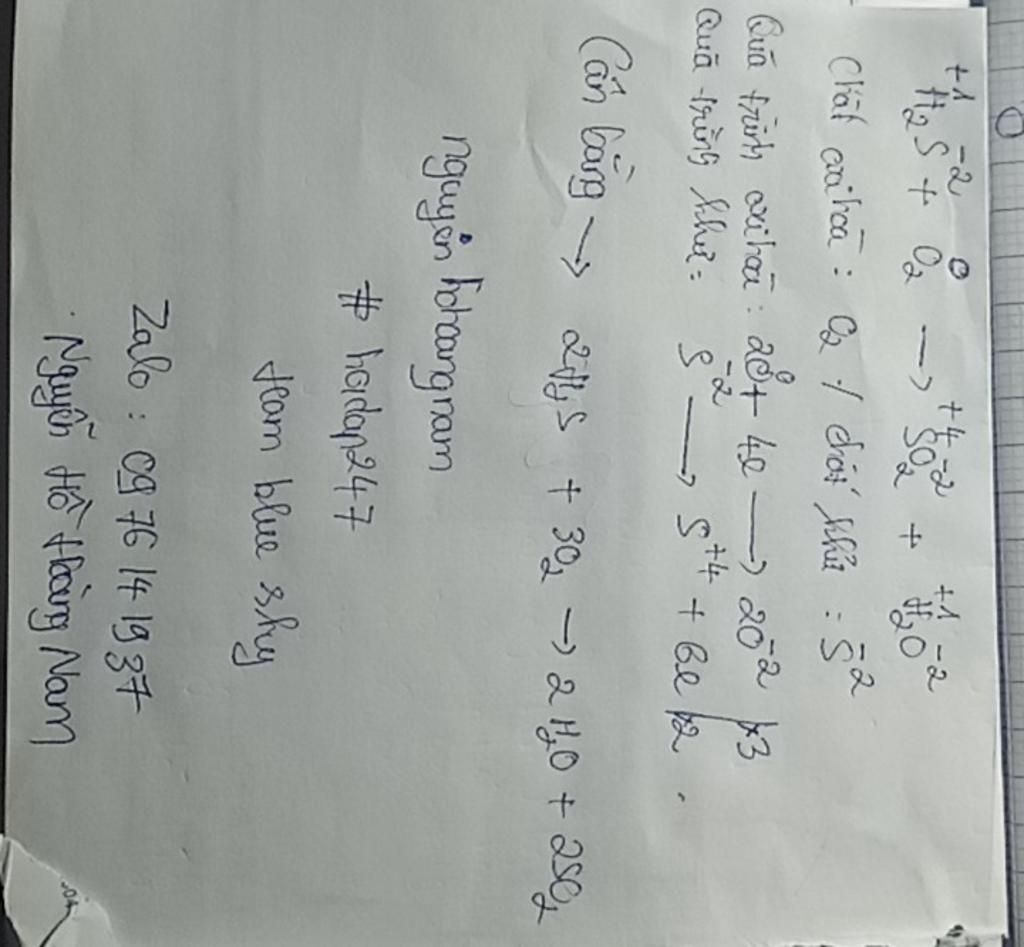 +1 -2 0 +4 -2 +1 -2
H₂S + O₂ → SO₂ + H₂O
Chất oxi hoá : O₂ / chất khử : S⁻²
Quá trình oxi hoá : 2O⁰ + 4e → 2O⁻² | x3
Quá trình khử : S⁻² → S⁺⁴ + 6e | x2 .
Cân bằng → 2H₂S + 3O₂ → 2H₂O + 2SO₂
nguyenhohoangnam
# hoidap247
team blue sky
Zalo : 0976141937
. Nguyễn Hồ Hoàng Nam